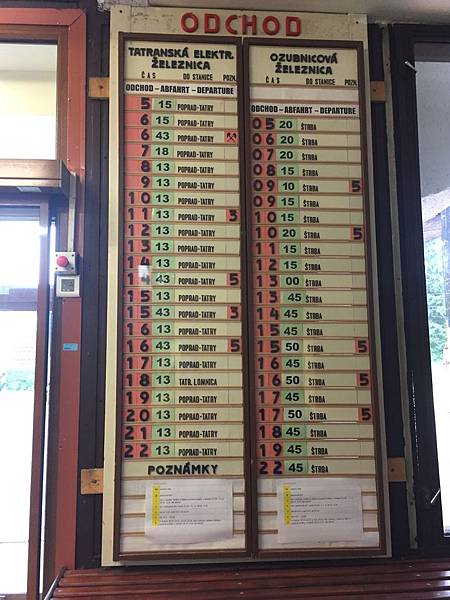 ODCHOD
TATRANSKÁ ELEKTR. ŽELEZNICA
ČAS DO STANICE POZN.
ODCHOD – ABFAHRT – DEPARTURE
5 15 POPRAD-TATRY
6 15 POPRAD-TATRY
6 43 POPRAD-TATRY
7 18 POPRAD-TATRY
8 13 POPRAD-TATRY
9 13 POPRAD-TATRY
10 13 POPRAD-TATRY
11 13 POPRAD-TATRY 3
12 13 POPRAD-TATRY
13 13 POPRAD-TATRY
14 13 POPRAD-TATRY
14 43 POPRAD-TATRY 5
15 13 POPRAD-TATRY
15 43 POPRAD-TATRY 3
16 13 POPRAD-TATRY
16 43 POPRAD-TATRY 5
17 13 POPRAD-TATRY
18 13 TATR. LOMNICA
19 13 POPRAD-TATRY
20 13 POPRAD-TATRY
21 13 POPRAD-TATRY
22 13 POPRAD-TATRY
POZNÁMKY
OZUBNICOVÁ ŽELEZNICA
ČAS DO STANICE POZN.
ODCHOD – ABFAHRT – DEPARTURE
05 20 ŠTRBA
06 20 ŠTRBA
07 20 ŠTRBA
08 15 ŠTRBA
09 10 ŠTRBA 5
09 15 ŠTRBA
10 15 ŠTRBA
10 20 ŠTRBA 5
11 15 ŠTRBA
12 15 ŠTRBA
13 00 ŠTRBA
13 45 ŠTRBA
14 45 ŠTRBA
15 45 ŠTRBA
15 50 ŠTRBA 5
16 45 ŠTRBA
16 50 ŠTRBA 5
17 45 ŠTRBA
17 50 ŠTRBA 5
18 45 ŠTRBA
19 45 ŠTRBA
22 45 ŠTRBA